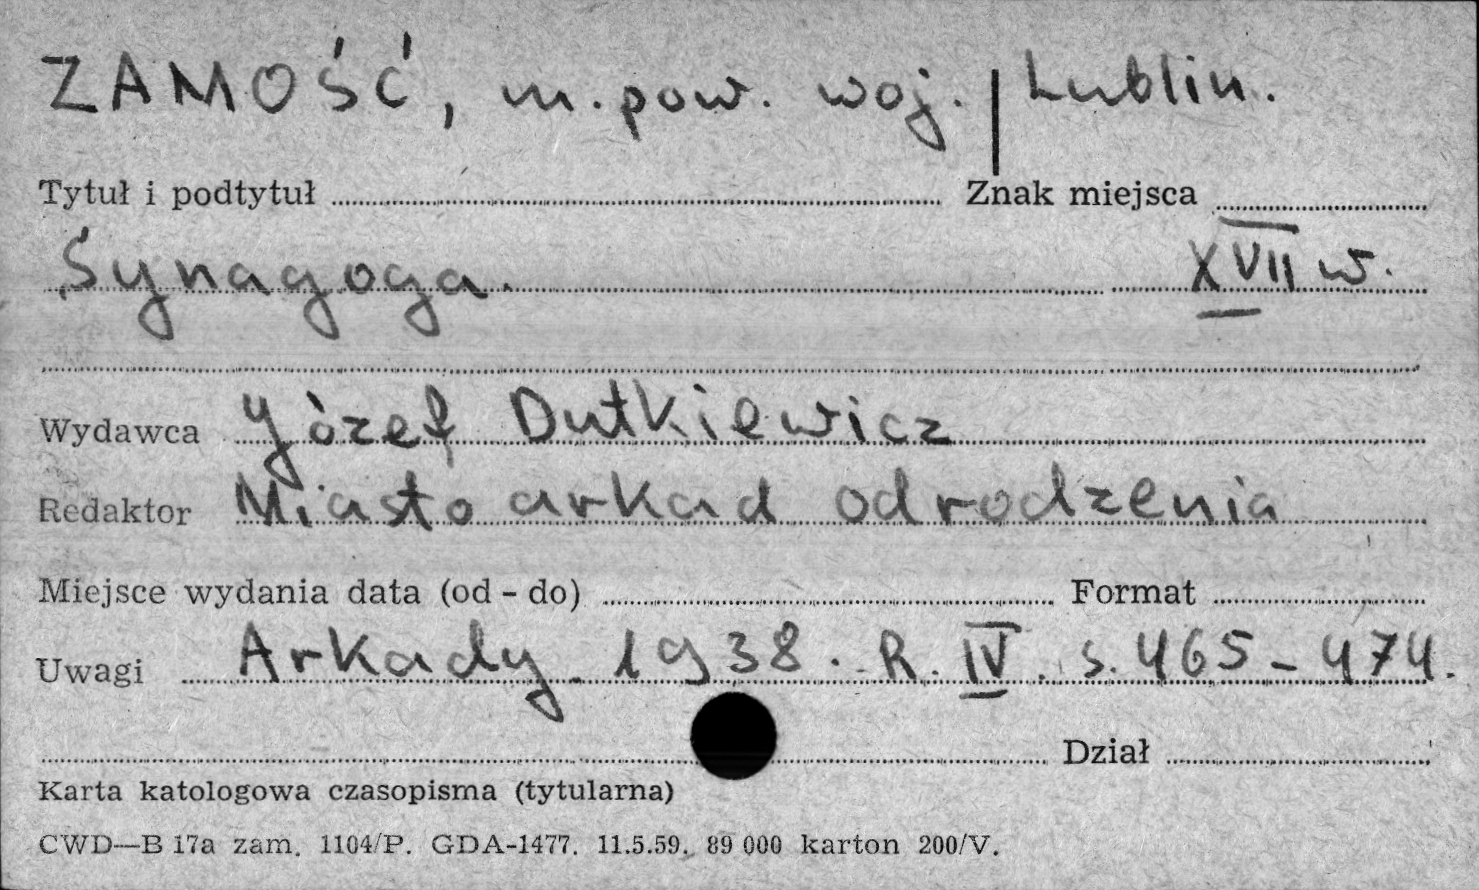 ZAMOŚĆ, m. pow. woj. | Lublin.
Tytuł i podtytuł Znak miejsca
Synagoga. XVII w.
Wydawca Józef Dutkiewicz
Redaktor Miasto arkad odrodzenia
Miejsce wydania data (od - do) Format
Uwagi Arkady. 1938. R. IV. s. 465-474.
Dział
Karta katologowa czasopisma (tytularna)
CWD—B 17a zam. 1104/P. GDA-1477. 11.5.59. 89 000 karton 200/V.